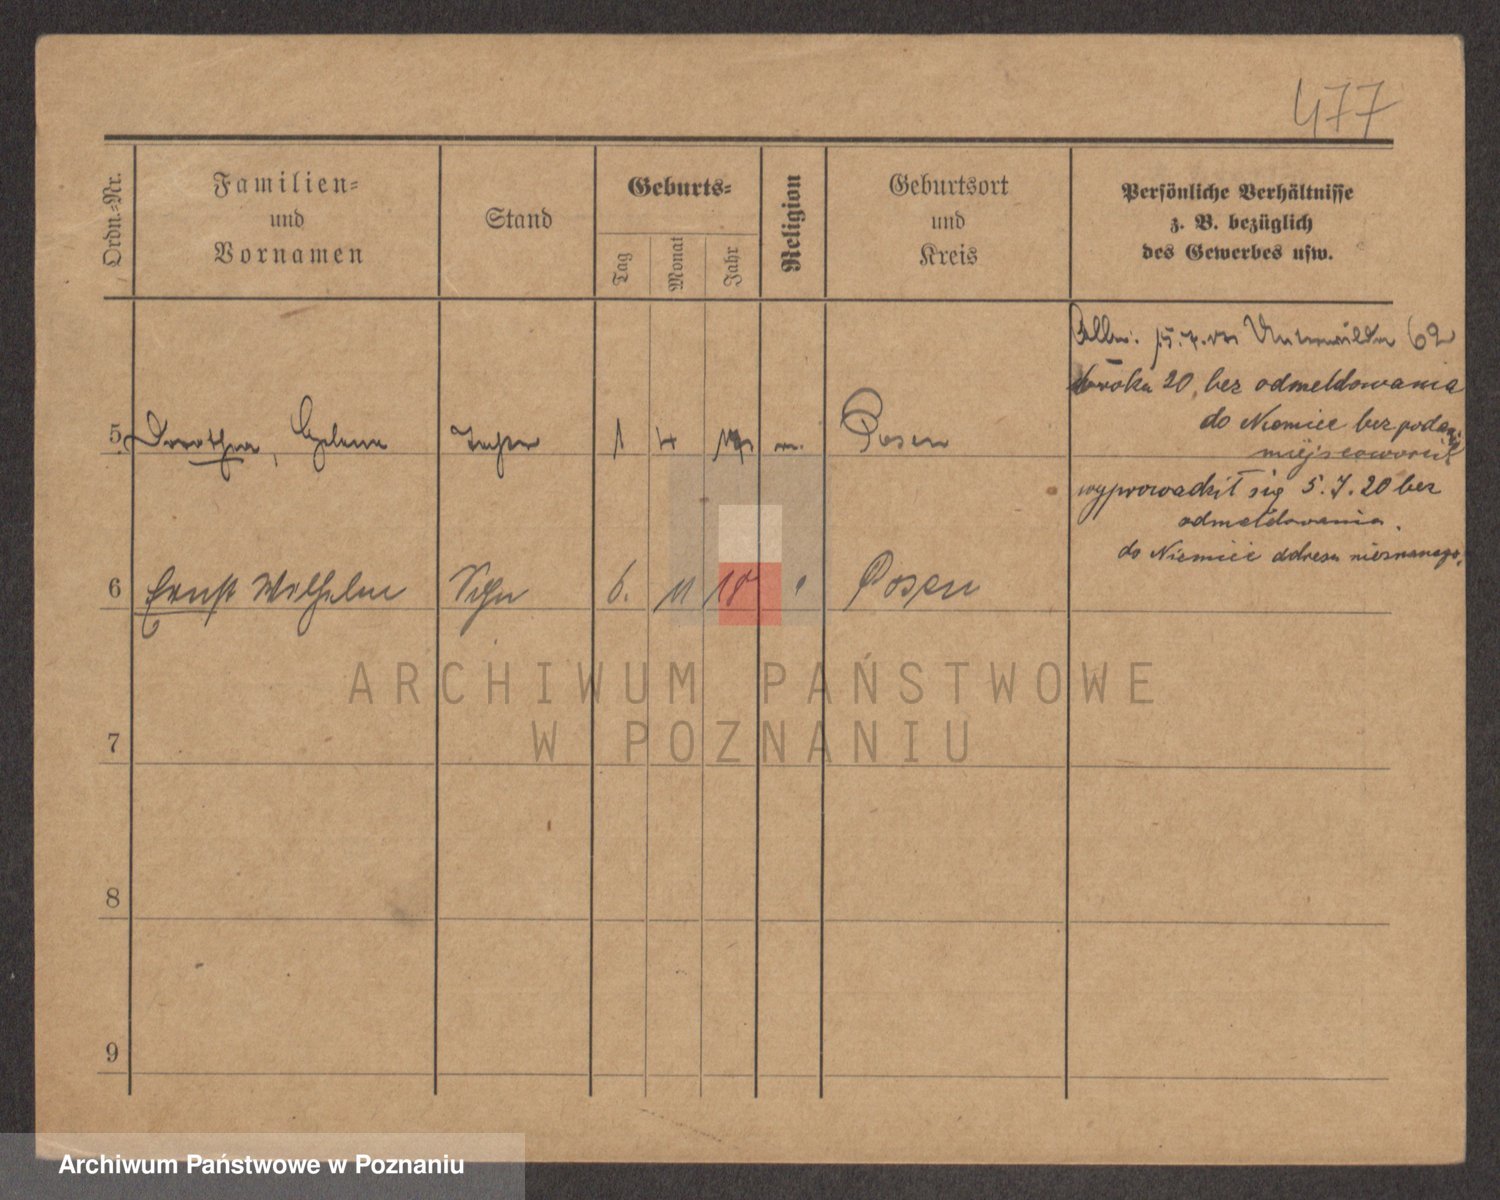 477
Ordn.-Nr.
Familien-
und
Vornamen
Stand
Geburts-
Tag
Monat
Jahr
Religion
Geburtsort
und
Kreis
Persönliche Verhältnisse
z. B. bezüglich
des Gewerbes usw.
Unterwilda 62
roku 20 bez odmeldowania
do Niemiec bez podan
miejscowości
5 Dorothea, Helene Tochter 1 4 Posen
wyprowadził się 5.7.20 bez
odmeldowania.
do Niemiec adresu nieznanego.
6 Ernst Wilhelm Sohn 6. 11 18 " Posen
ARCHIWUM PAŃSTWOWE
W POZNANIU
7
8
9
Archiwum Państwowe w Poznaniu